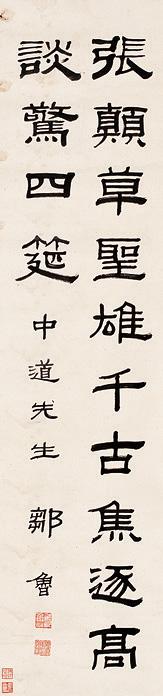 張顛草聖雄千古焦遂高
談驚四筵 中道先生 鄒魯